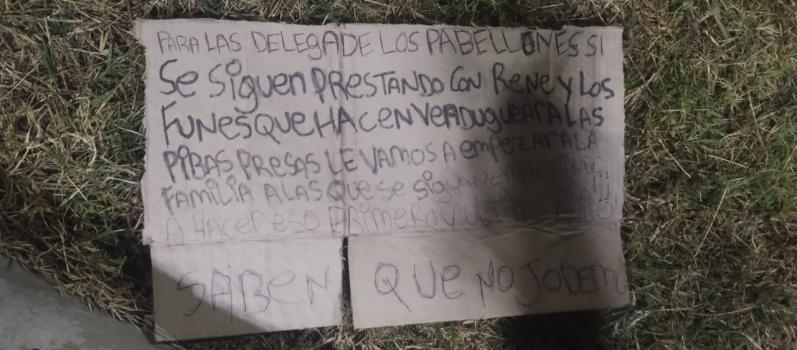 PARA LAS DELEGADE LOS PABELLONES SI
SE SIGUEN PRESTANDO CON RENE Y LOS
FUNES QUE HACEN VERDUGUEAR A LAS
PIBAS PRESAS LE VAMOS A EMPEZAR A LA
FAMILIA A LAS QUE SE SIGUAN
A HACER ESO PRIMERO Y
SABEN QUE NO JODEMO